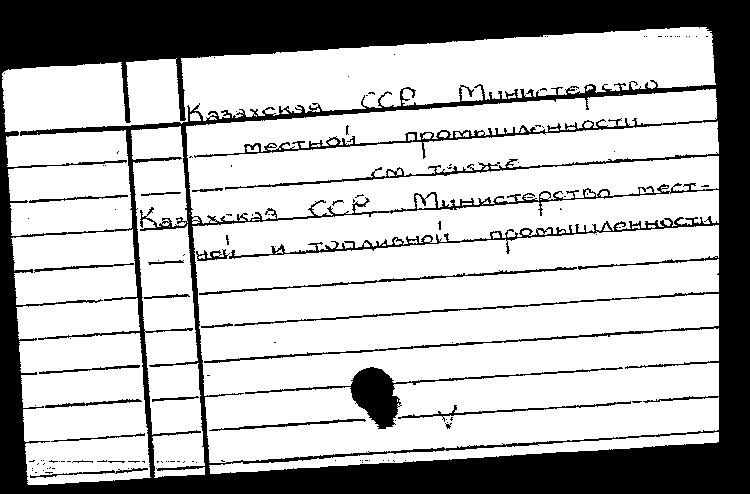 Казахская ССР. Министерство
местной промышленности
см. также
Казахская ССР. Министерство мест-
ной и топливной промышленности
V